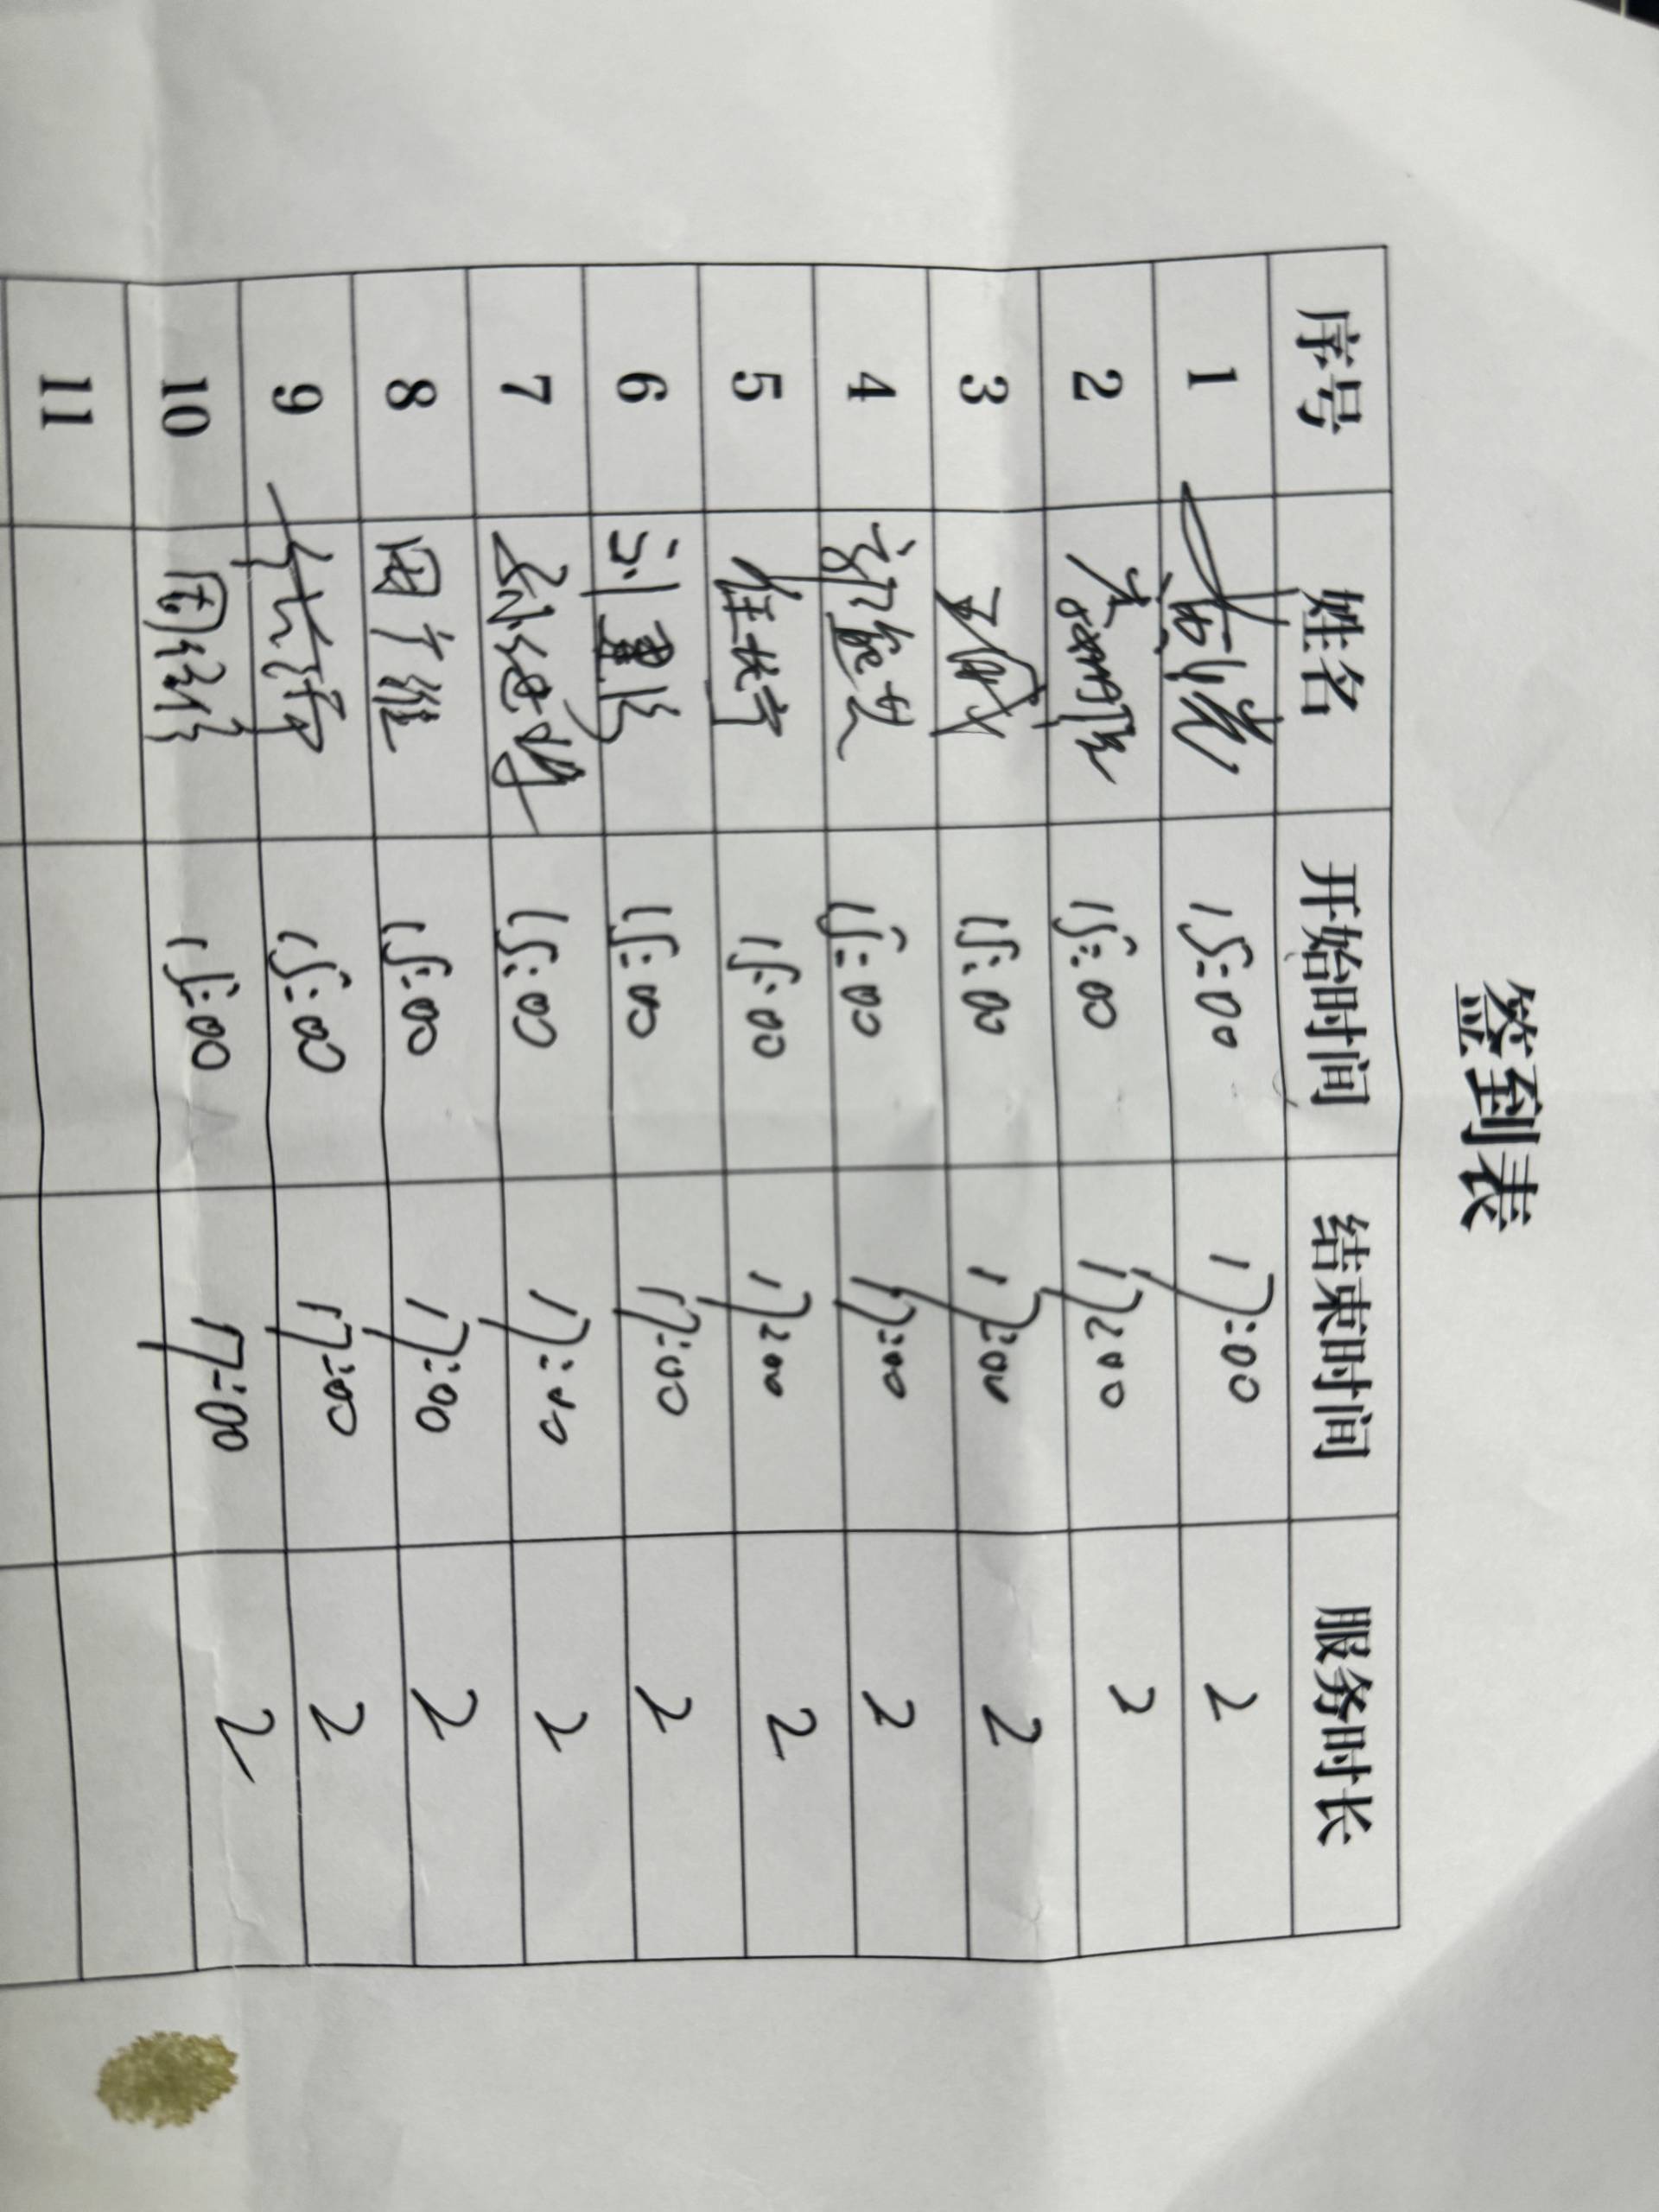 签到表
序号 姓名 开始时间 结束时间 服务时长
1 15:00 17:00 2
2 15:00 17:00 2
3 15:00 17:00 2
4 15:00 17:00 2
5 15:00 17:00 2
6 刘 15:00 17:00 2
7 15:00 17:00 2
8 周广维 15:00 17:00 2
9 15:00 17:00 2
10 周 15:00 17:00 2
11